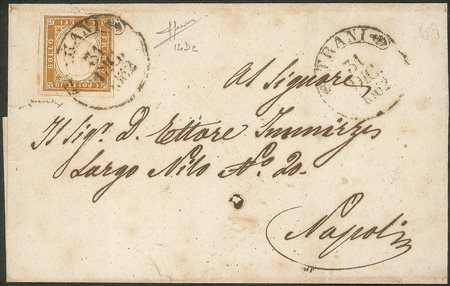 BOLLO
TRANI
31
DIC.
1862
14Dc
TRANI
31
DIC.
1862
Al Signore
Il Sigr. D. Ettore
Largo Nilo No. 20.
Napoli